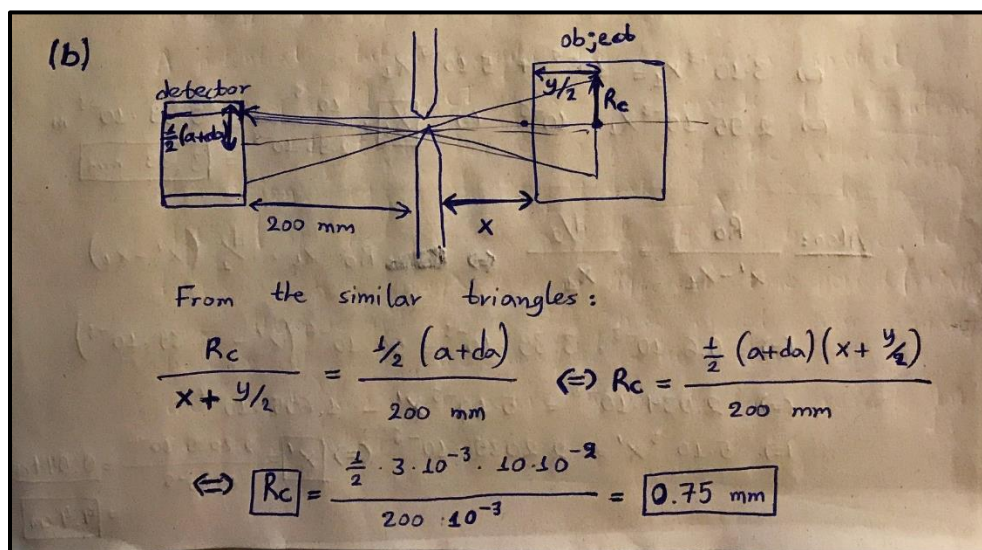 (b)
object
detector
y/2
Rc
½(a+da)
200 mm
x
From the similar triangles:
Rc / (x + y/2) = ½ (a+da) / 200 mm <=> Rc = ½ (a+da) (x + y/2) / 200 mm
<=> Rc = ½ · 3 · 10⁻³ · 10 · 10⁻² / 200 · 10⁻³ = 0.75 mm